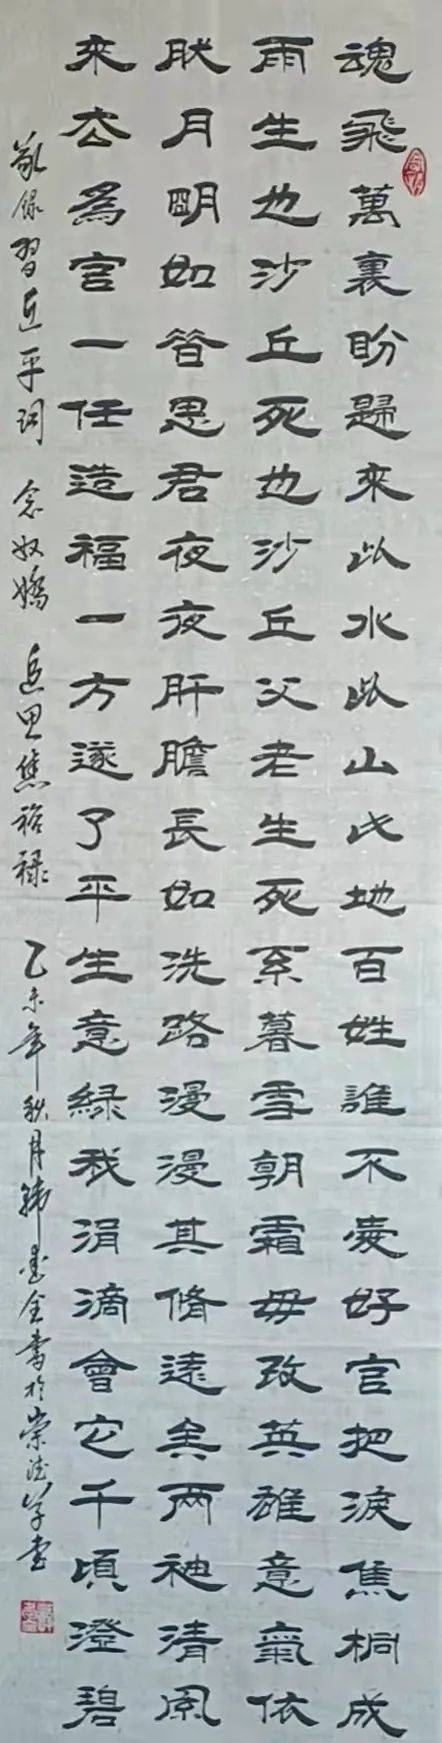 魂飛萬裏盼歸來此水此山此地百姓誰不愛好官把淚焦桐成
雨生也沙丘死也沙丘父老生死系暮雪朝霜毋改英雄意氣依
肰月明如昔思君夜夜肝膽長如洗路漫漫其脩遠矣兩袖清風
來去爲官一任造福一方遂了平生意綠我涓滴會它千頃澄碧
敬錄習近平詞 念奴嬌 追思焦裕祿 乙未年秋月韩金書於崇德草堂